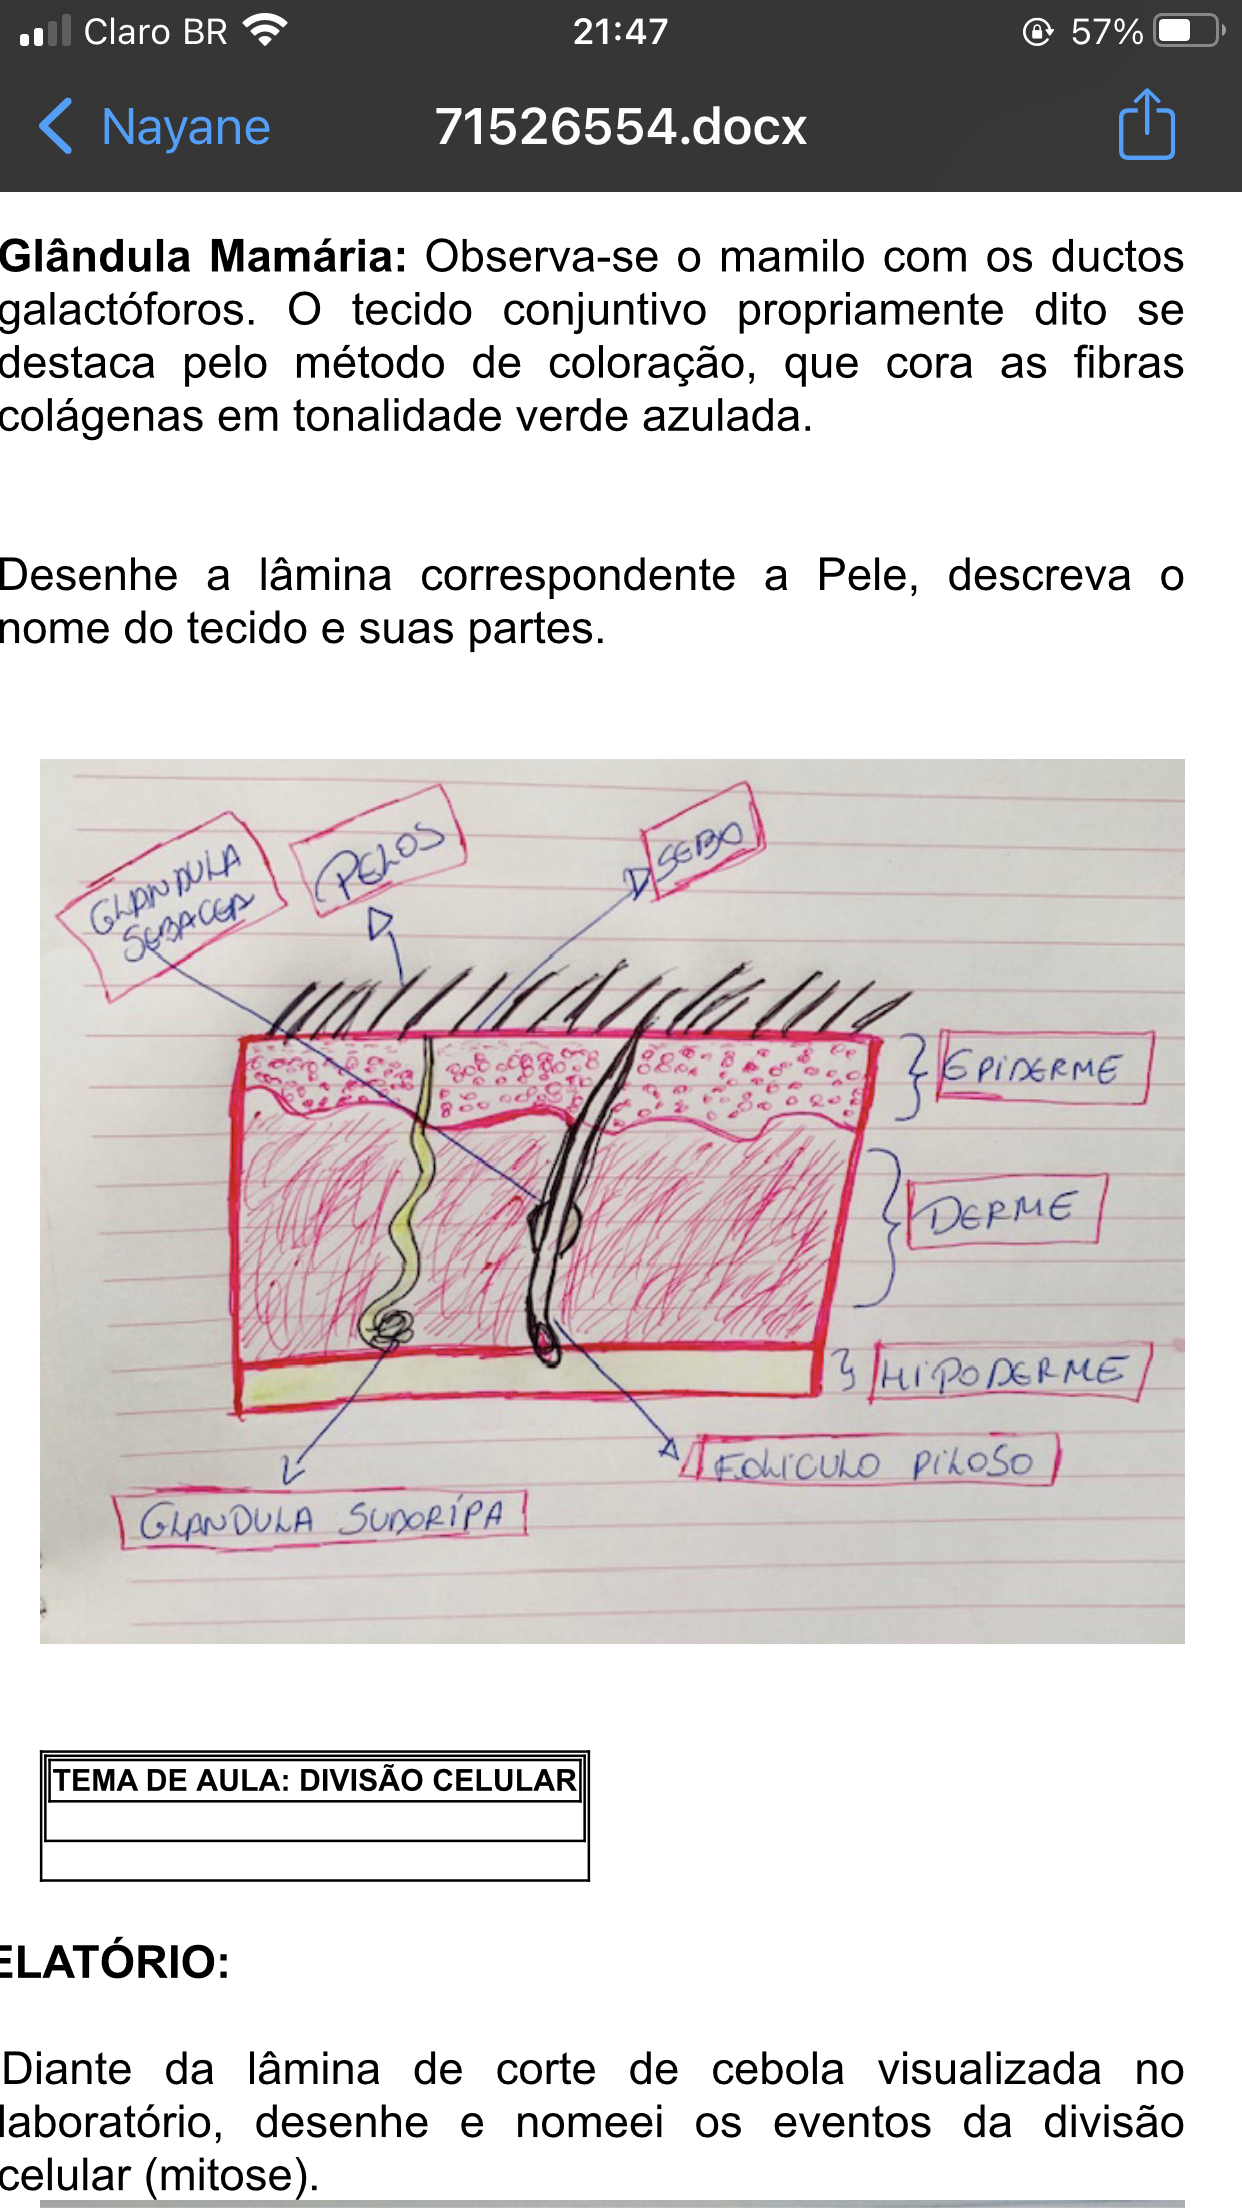 Claro BR
21:47
57%
Nayane
71526554.docx
Glândula Mamária: Observa-se o mamilo com os ductos
galactóforos. O tecido conjuntivo propriamente dito se
destaca pelo método de coloração, que cora as fibras
colágenas em tonalidade verde azulada.
Desenhe a lâmina correspondente a Pele, descreva o
nome do tecido e suas partes.
GLANDULA
SEBACEA
PELOS
SEBO
EPIDERME
DERME
HIPODERME
FOLICULO PILOSO
GLANDULA SUDORÍPA
TEMA DE AULA: DIVISÃO CELULAR
ELATÓRIO:
Diante da lâmina de corte de cebola visualizada no
laboratório, desenhe e nomeei os eventos da divisão
celular (mitose).